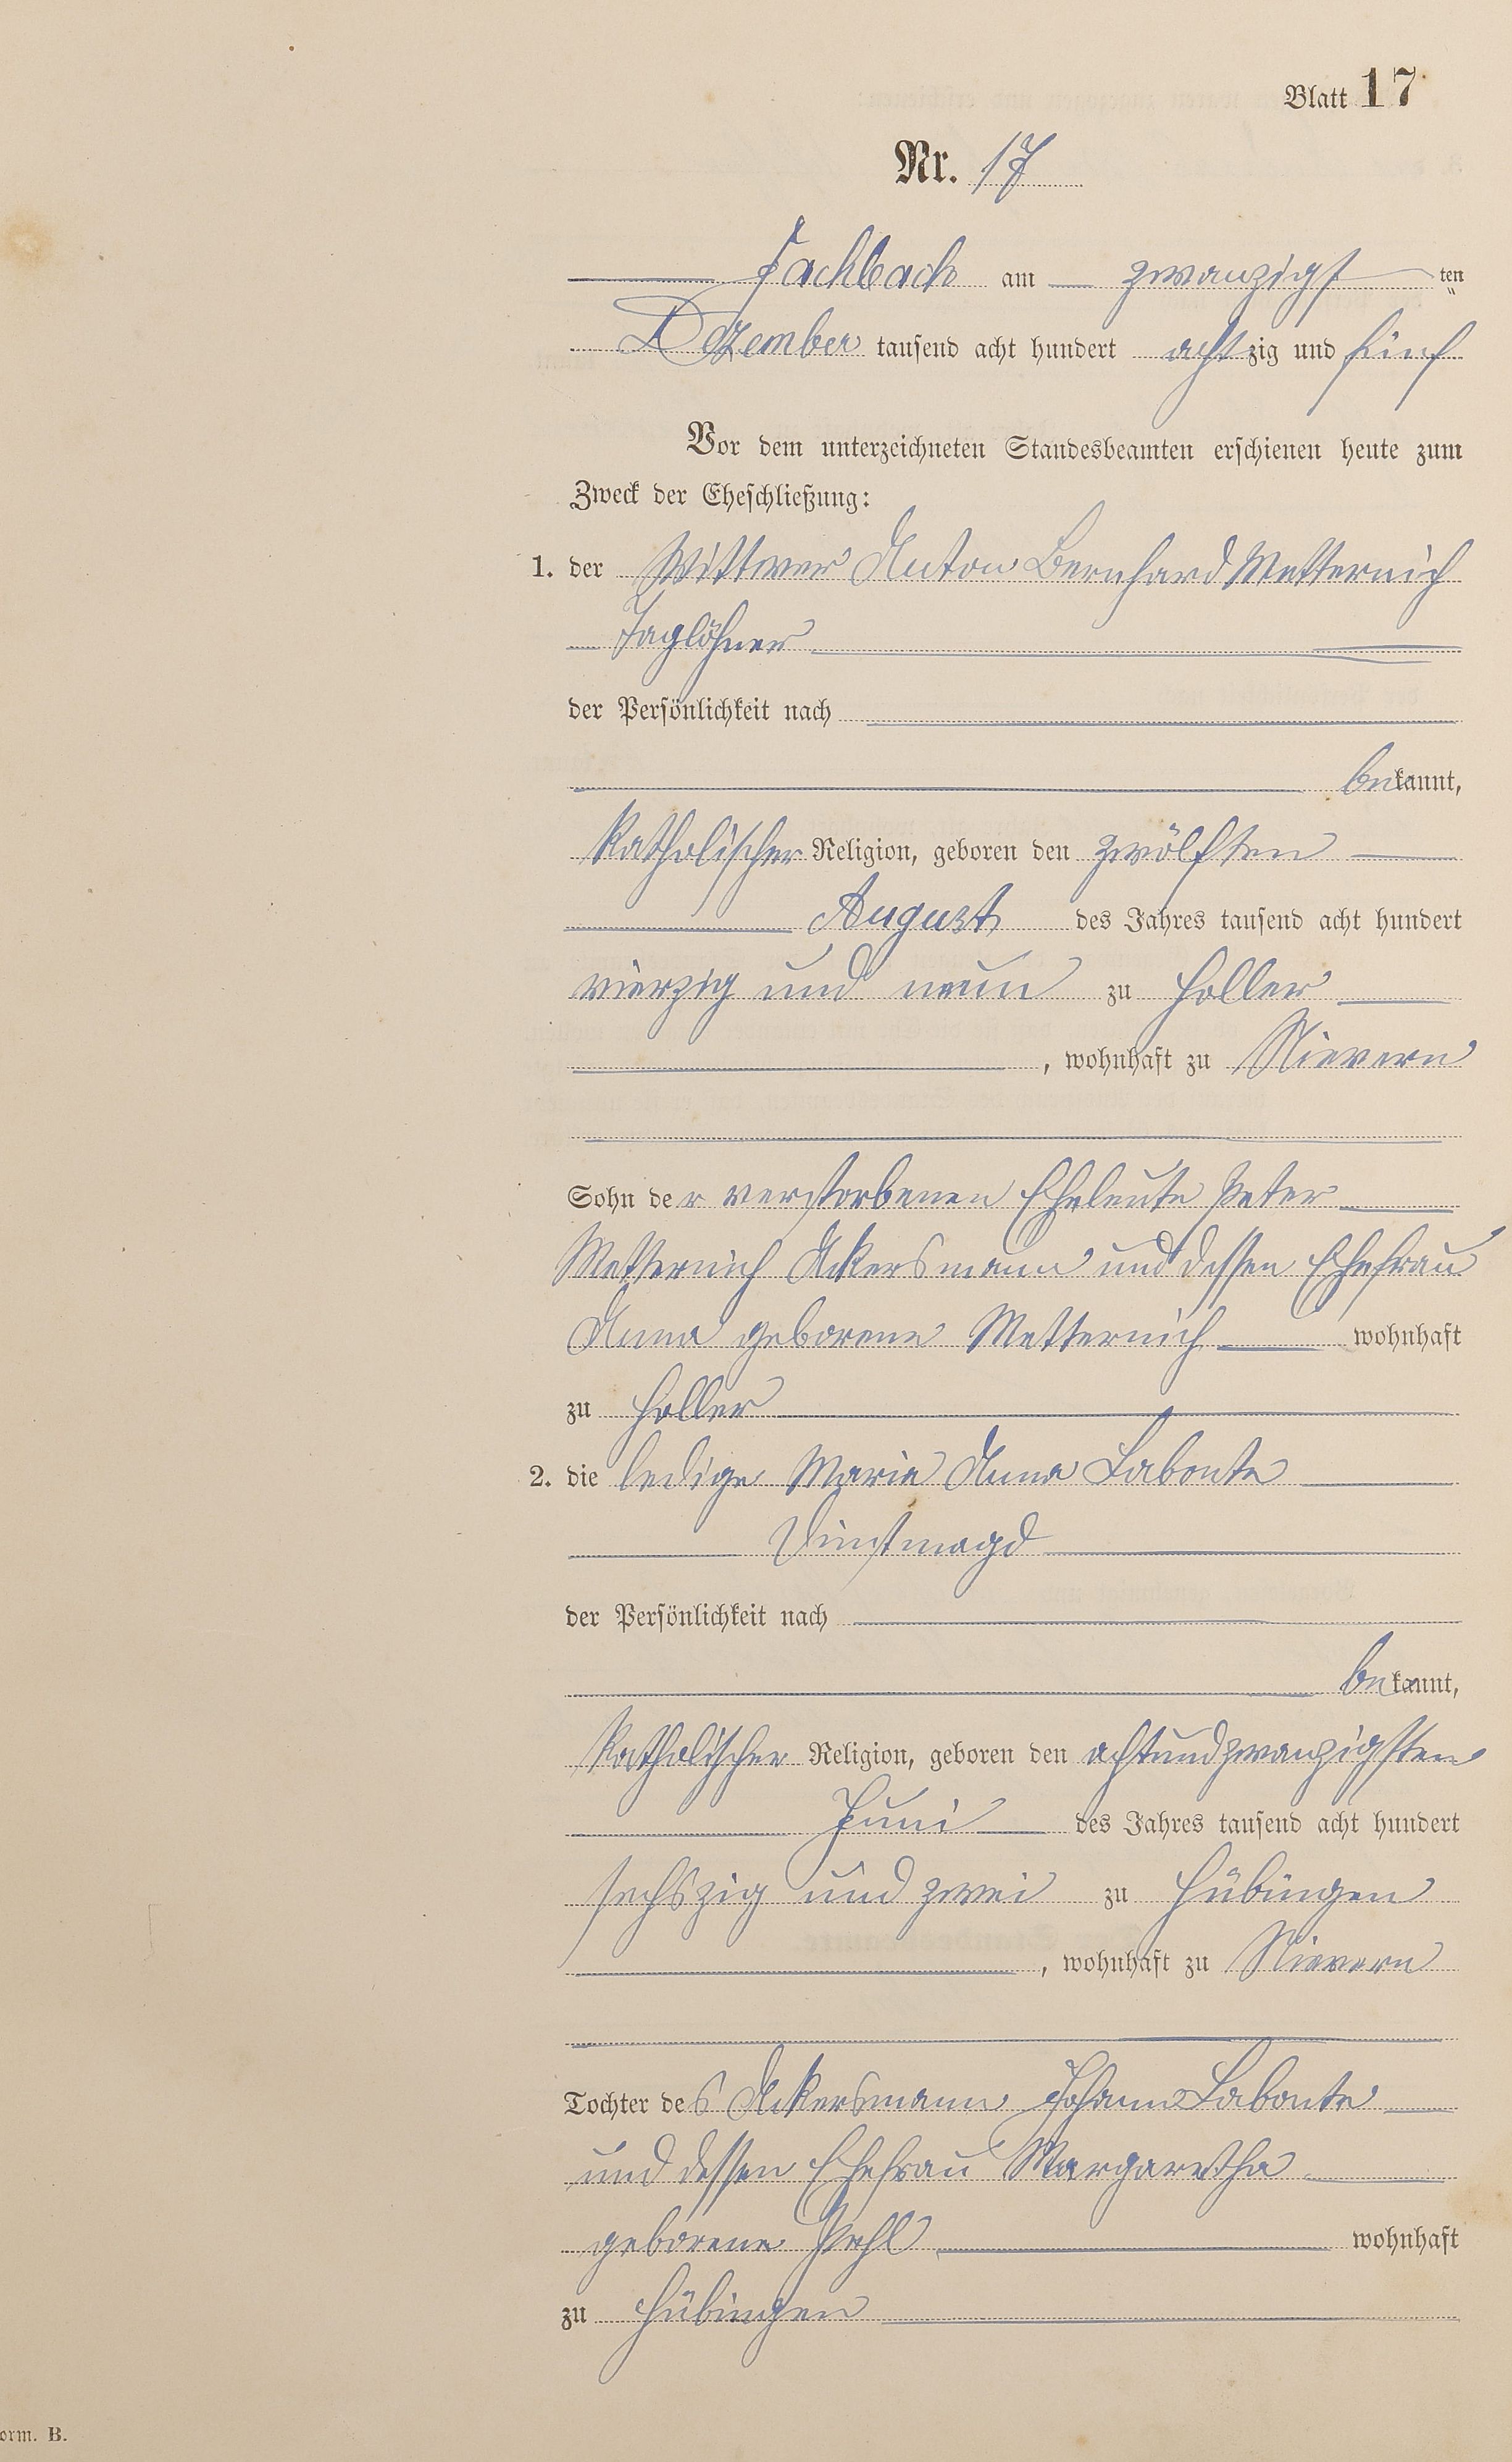 Blatt 17
Nr. 17
Fachbach am zwanzigst ten
Dezember tausend acht hundert achtzig und fünf
Vor dem unterzeichneten Standesbeamten erschienen heute zum
Zweck der Eheschließung:
1. der Wittwer Anton Bernhard Metternich
Taglöhner
der Persönlichkeit nach
bekannt,
katholischer Religion, geboren den zwölften
August des Jahres tausend acht hundert
vierzig und neun zu Holler
, wohnhaft zu Nievern
Sohn der verstorbenen Eheleute Peter
Metternich Ackersmann und dessen Ehefrau
Anna geborene Metternich wohnhaft
zu Holler
2. die ledige Maria Anna Labonte
Dienstmagd
der Persönlichkeit nach
bekannt,
katholischer Religion, geboren den achtundzwanzigsten
Juni des Jahres tausend acht hundert
sechszig und zwei zu Hübingen
, wohnhaft zu Nievern
Tochter des Ackersmann Johann Labonte
und dessen Ehefrau Margaretha
geborene Pehl wohnhaft
zu Hübingen
orm. B.